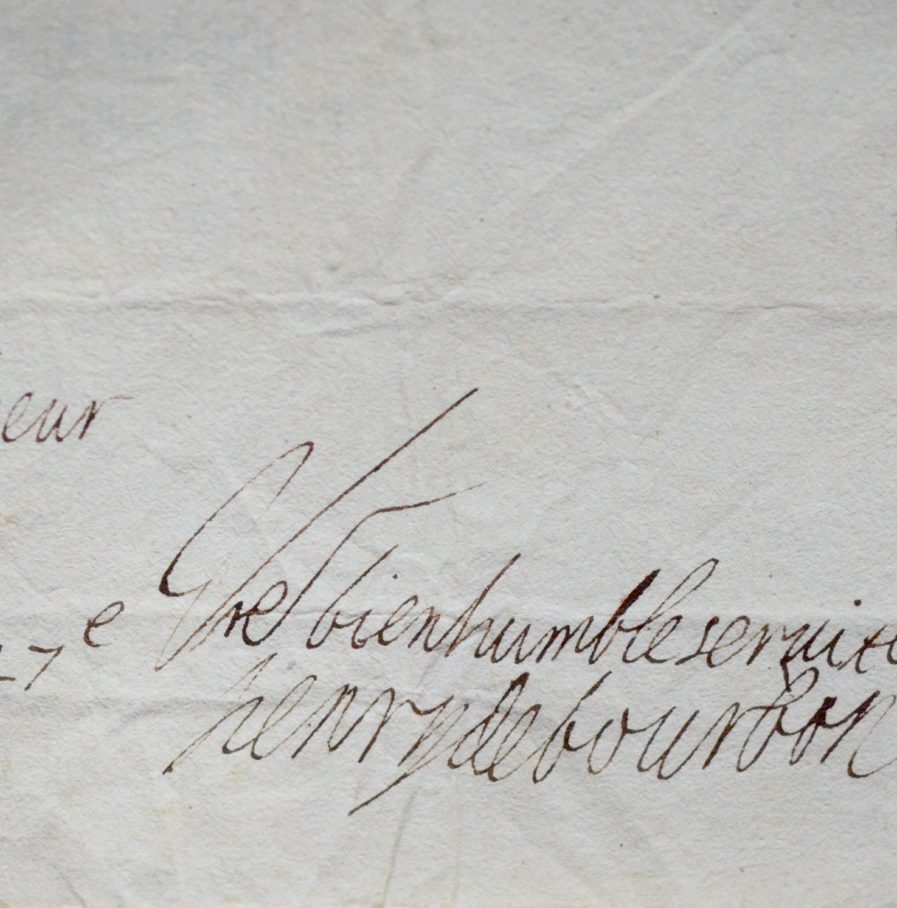 eur
27e Vre bien humble seruite
henry de bourbon